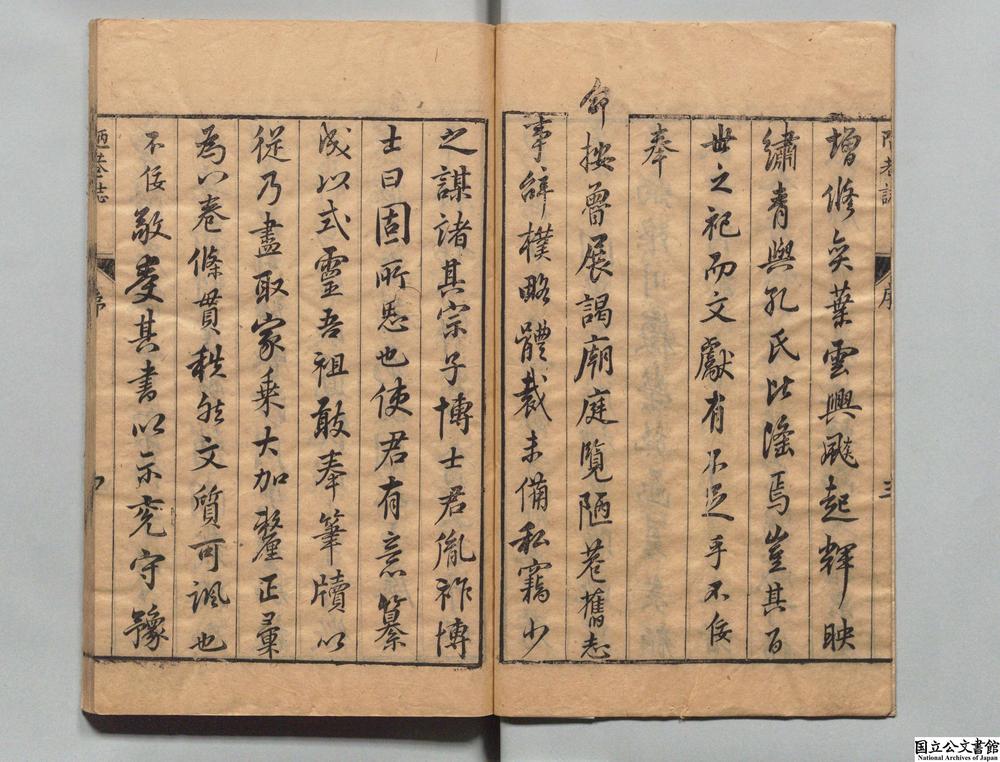 陋巷誌
序
三
增修奕葉雲興飇起輝映
繡青與孔氏比隆焉豈其百
世之祀而文獻有不足乎不佞
奉
命按魯展謁廟庭覽陋巷舊志
事辭樸略體裁未備私竊少
之謀諸其宗子博士君胤祚博
士曰固所愿也使君有意纂
成以式靈吾祖敢奉筆牘以
從乃盡取家乘大加釐正彙
為八卷條貫秩然文質可諷也
不佞敬受其書以示兗守豫
陋巷誌
序
国立公文書館
National Archives of Japan